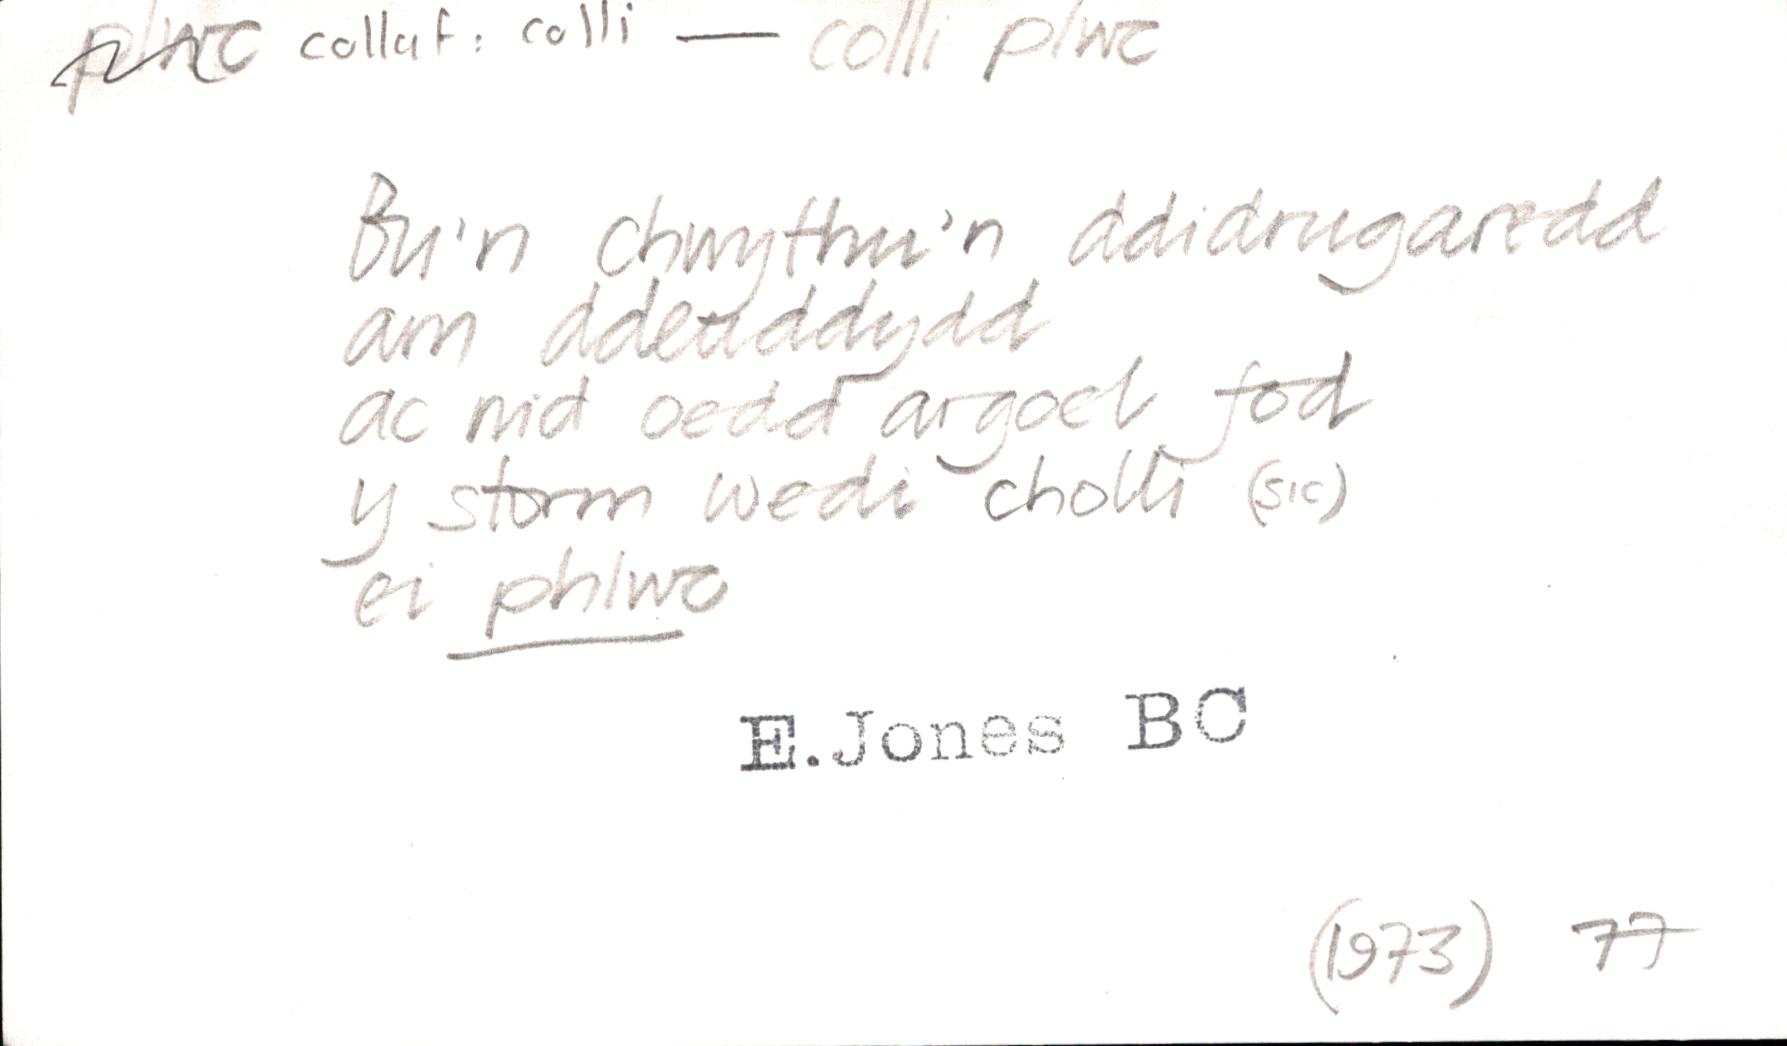 plwc collaf: colli — colli plwc
Bu'n chwythu'n ddidrugaredd
am ddeuddydd
ac nid oedd argoel fod
y storm wedi cholli (sic)
ei phlwc
E.Jones BC
(1973) 77